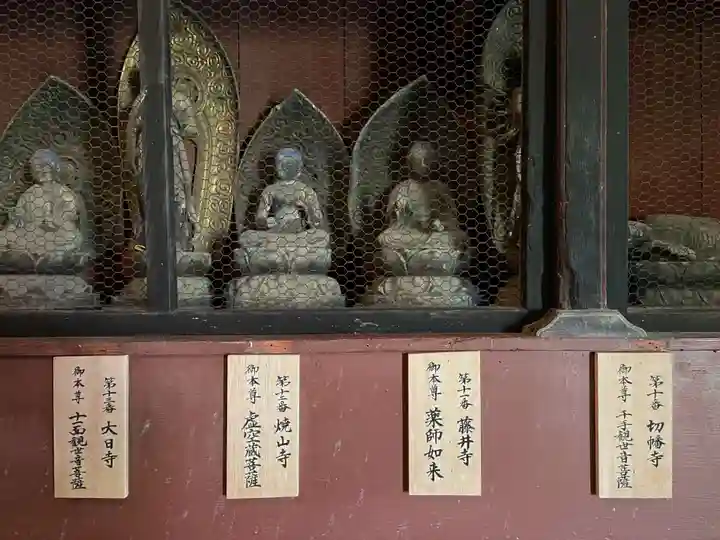 第十番 切幡寺
御本尊 千手観世音菩薩
第十一番 藤井寺
御本尊 薬師如来
第十二番 焼山寺
御本尊 虚空蔵菩薩
第十三番 大日寺
御本尊 十一面観世音菩薩